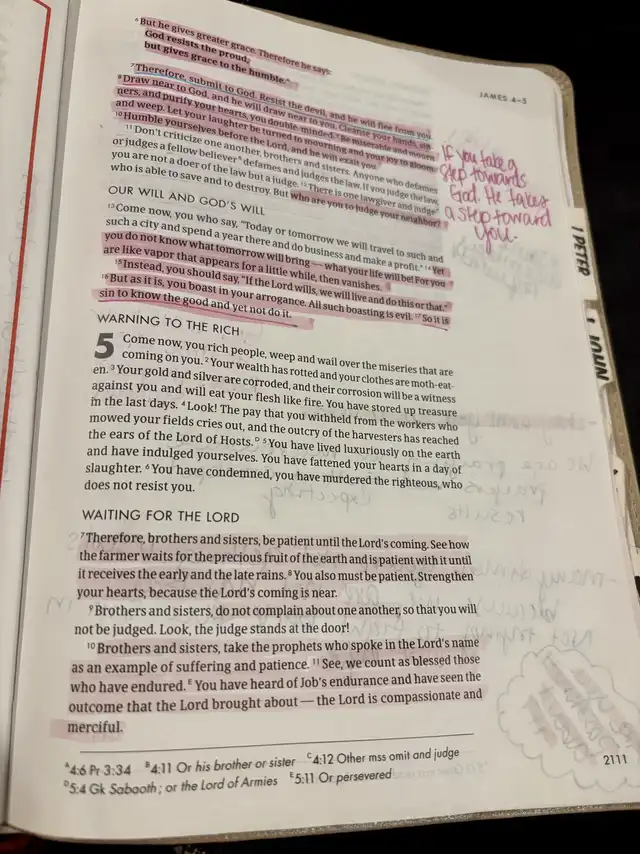 JAMES 4–5
⁶But he gives greater grace. Therefore he says:
God resists the proud,
but gives grace to the humble.ᴬ
⁷Therefore, submit to God. Resist the devil, and he will flee from you.
⁸Draw near to God, and he will draw near to you. Cleanse your hands, sin-
ners, and purify your hearts, you double-minded. ⁹Be miserable and mourn
and weep. Let your laughter be turned to mourning and your joy to gloom.
¹⁰Humble yourselves before the Lord, and he will exalt you.
¹¹Don't criticize one another, brothers and sisters. Anyone who defames
or judges a fellow believerᴮ defames and judges the law. If you judge the law,
you are not a doer of the law but a judge. ¹²There is one lawgiver and judgeᶜ
who is able to save and to destroy. But who are you to judge your neighbor?
OUR WILL AND GOD'S WILL
¹³Come now, you who say, "Today or tomorrow we will travel to such and
such a city and spend a year there and do business and make a profit." ¹⁴Yet
you do not know what tomorrow will bring — what your life will be! For you
are like vapor that appears for a little while, then vanishes.
¹⁵Instead, you should say, "If the Lord wills, we will live and do this or that."
¹⁶But as it is, you boast in your arrogance. All such boasting is evil. ¹⁷So it is
sin to know the good and yet not do it.
WARNING TO THE RICH
5 Come now, you rich people, weep and wail over the miseries that are
coming on you. ²Your wealth has rotted and your clothes are moth-eat-
en. ³Your gold and silver are corroded, and their corrosion will be a witness
against you and will eat your flesh like fire. You have stored up treasure
in the last days. ⁴Look! The pay that you withheld from the workers who
mowed your fields cries out, and the outcry of the harvesters has reached
the ears of the Lord of Hosts.ᴰ ⁵You have lived luxuriously on the earth
and have indulged yourselves. You have fattened your hearts in a day of
slaughter. ⁶You have condemned, you have murdered the righteous, who
does not resist you.
WAITING FOR THE LORD
⁷Therefore, brothers and sisters, be patient until the Lord's coming. See how
the farmer waits for the precious fruit of the earth and is patient with it until
it receives the early and the late rains. ⁸You also must be patient. Strengthen
your hearts, because the Lord's coming is near.
⁹Brothers and sisters, do not complain about one another, so that you will
not be judged. Look, the judge stands at the door!
¹⁰Brothers and sisters, take the prophets who spoke in the Lord's name
as an example of suffering and patience. ¹¹See, we count as blessed those
who have endured.ᴱ You have heard of Job's endurance and have seen the
outcome that the Lord brought about — the Lord is compassionate and
merciful.
ᴬ4:6 Pr 3:34 ᴮ4:11 Or his brother or sister ᶜ4:12 Other mss omit and judge
ᴰ5:4 Gk Sabaoth; or the Lord of Armies ᴱ5:11 Or persevered
2111
If you take a
step towards
God. He takes
a step toward
you.
1 PETER
1 JOHN